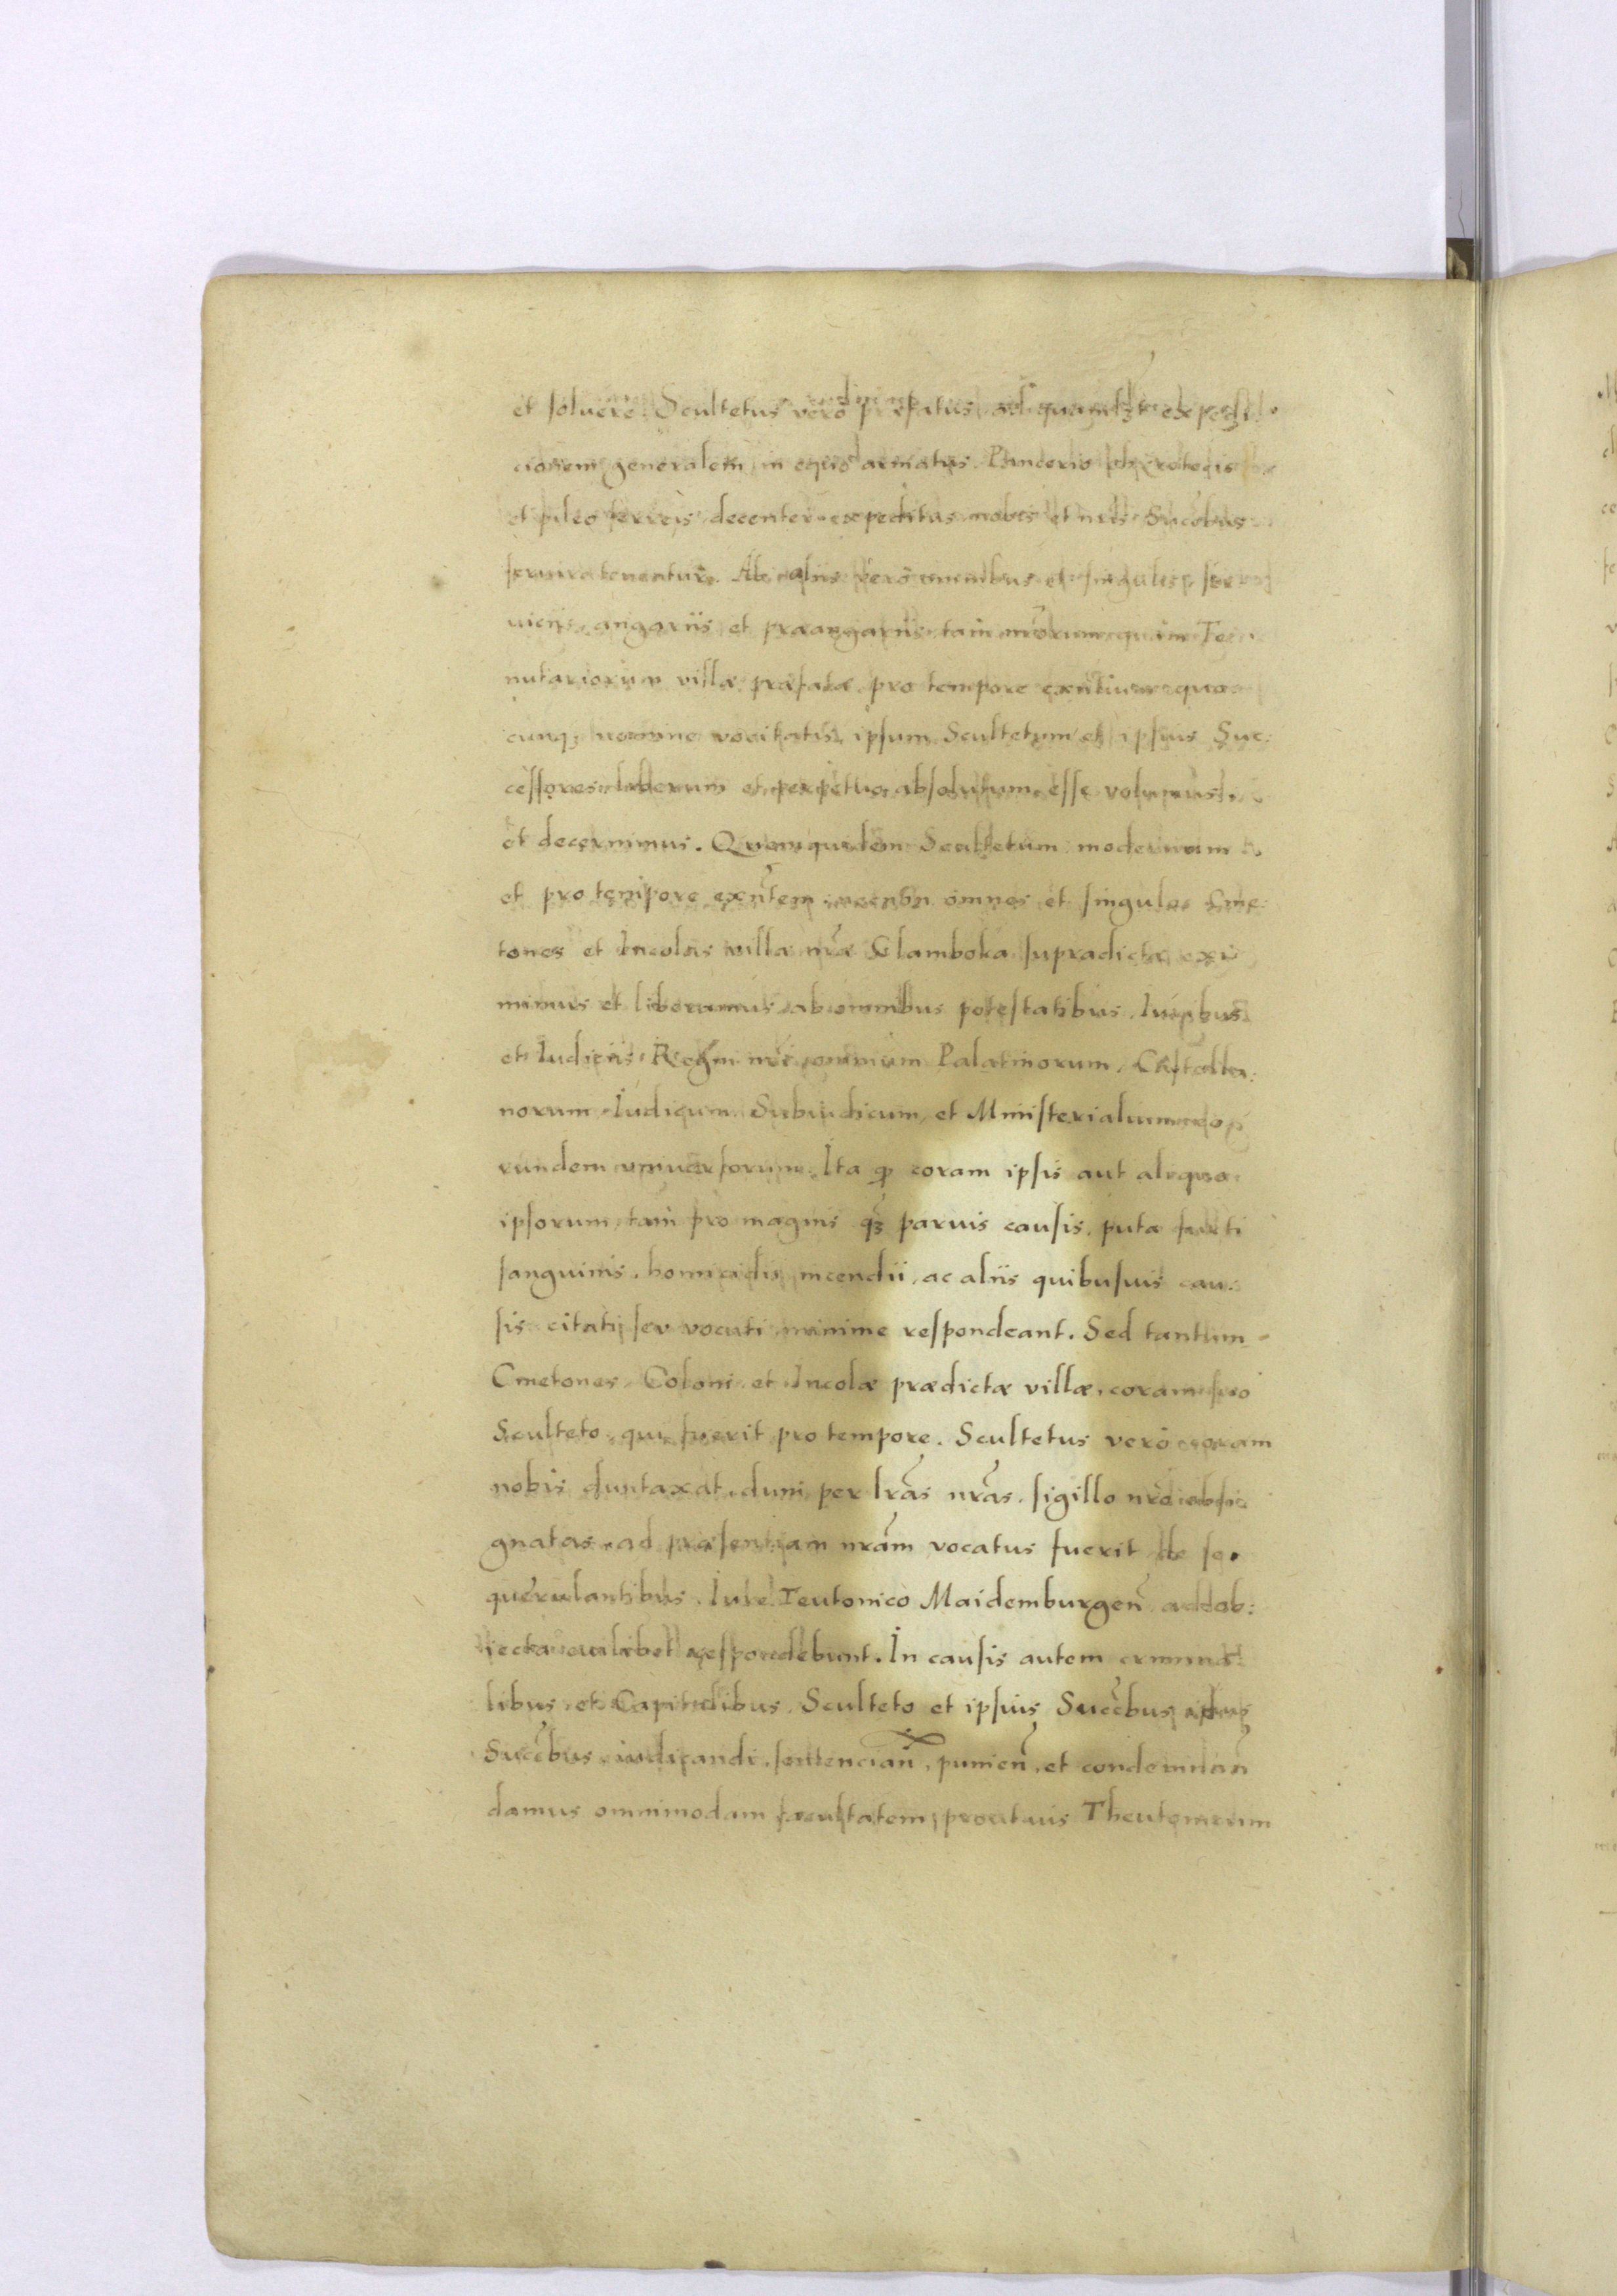 et soluere. Scultetus vero prefatus ad quamlibet expedi
cionem generalem in equo armatus. Pancerio chirotecis
et pileo ferreis decenter expeditus nobis et nris Succbus
seruire tenentur. Ab aliis vero omnibus et singulis ser
uiciis, angariis et præangariis, tam nrorum quam Te
nutariorum villæ præfatæ pro tempore exntium quo
cunq; nomine vocitatis, ipsum Scultetum et ipsius Suc:
cessores liberum et perpetuo absolutum esse volumus
et decernimus. Quemquidem Scultetum modernum
et pro tempore exntem, necnon omnes et singulos Cme
tones et Incolas villæ nræ Glamboka supradictæ exi
mimus et liberamus ab omnibus potestatibus, Iuribus
et Iudiciis Regni nri omnium Palatinorum, Castella:
norum, Iudicum Subiudicum, et Ministerialium eo
rundem vniuersorum. Ita q coram ipsis aut aliquo
ipsorum, tam pro magnis q3 paruis causis, puta furti
sanguinis, homicidii, incendii, ac aliis quibusuis cau:
sis citati seu vocati minime respondeant. Sed tantum
Cmetones, Coloni et Incolæ prædictæ villæ, coram suo
Sculteto, qui fuerit pro tempore. Scultetus vero coram
nobis duntaxat, dum per lras nras, sigillo nro obsi
gnatas, ad præsentiam nram vocatus fuerit de se
querulantibus, Iure Teutonico Maidemburgen ad ob:
iecta cuilibet respondebunt. In causis autem crimina
libus et Capitalibus, Sculteto et ipsius Succbus
Succbus iudicandi, sentencian, punien, et condemnan
damus omnimodam facultatem, prout ius Theutonicum